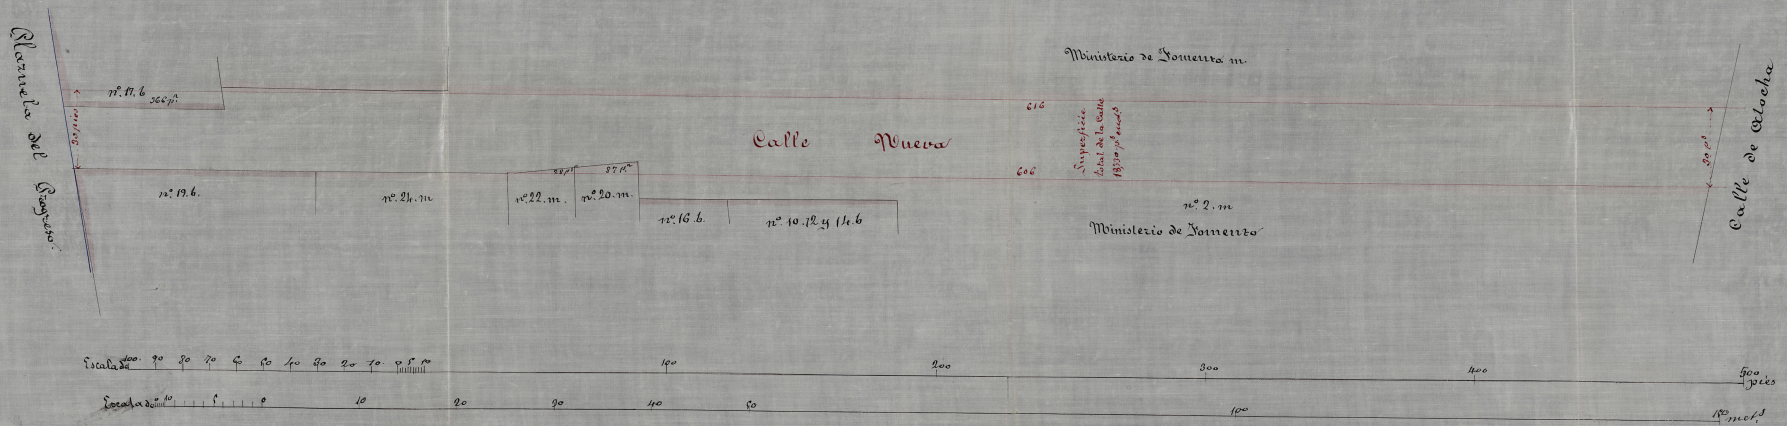 Plazuela del Progreso.
nº. 17. b
366 pˢ.
30 pies
Ministerio de Fomento m.
616
Calle Nueva
Superficie
total de la Calle
606
30 pˢ
Calle de Atocha
nº. 19. b.
nº. 24. m
nº. 22. m.
87 pˢ
nº. 20. m.
nº. 16. b.
nº. 10. 12 y 14. b
nº. 2. m
Ministerio de Fomento
Escala de 100. 90 80 70 60 50 40 30 20 10. 0 5 10 100 200 300 400 500 pies
Escala de 10 5 0 10 20 30 40 50 100 150 metˢ